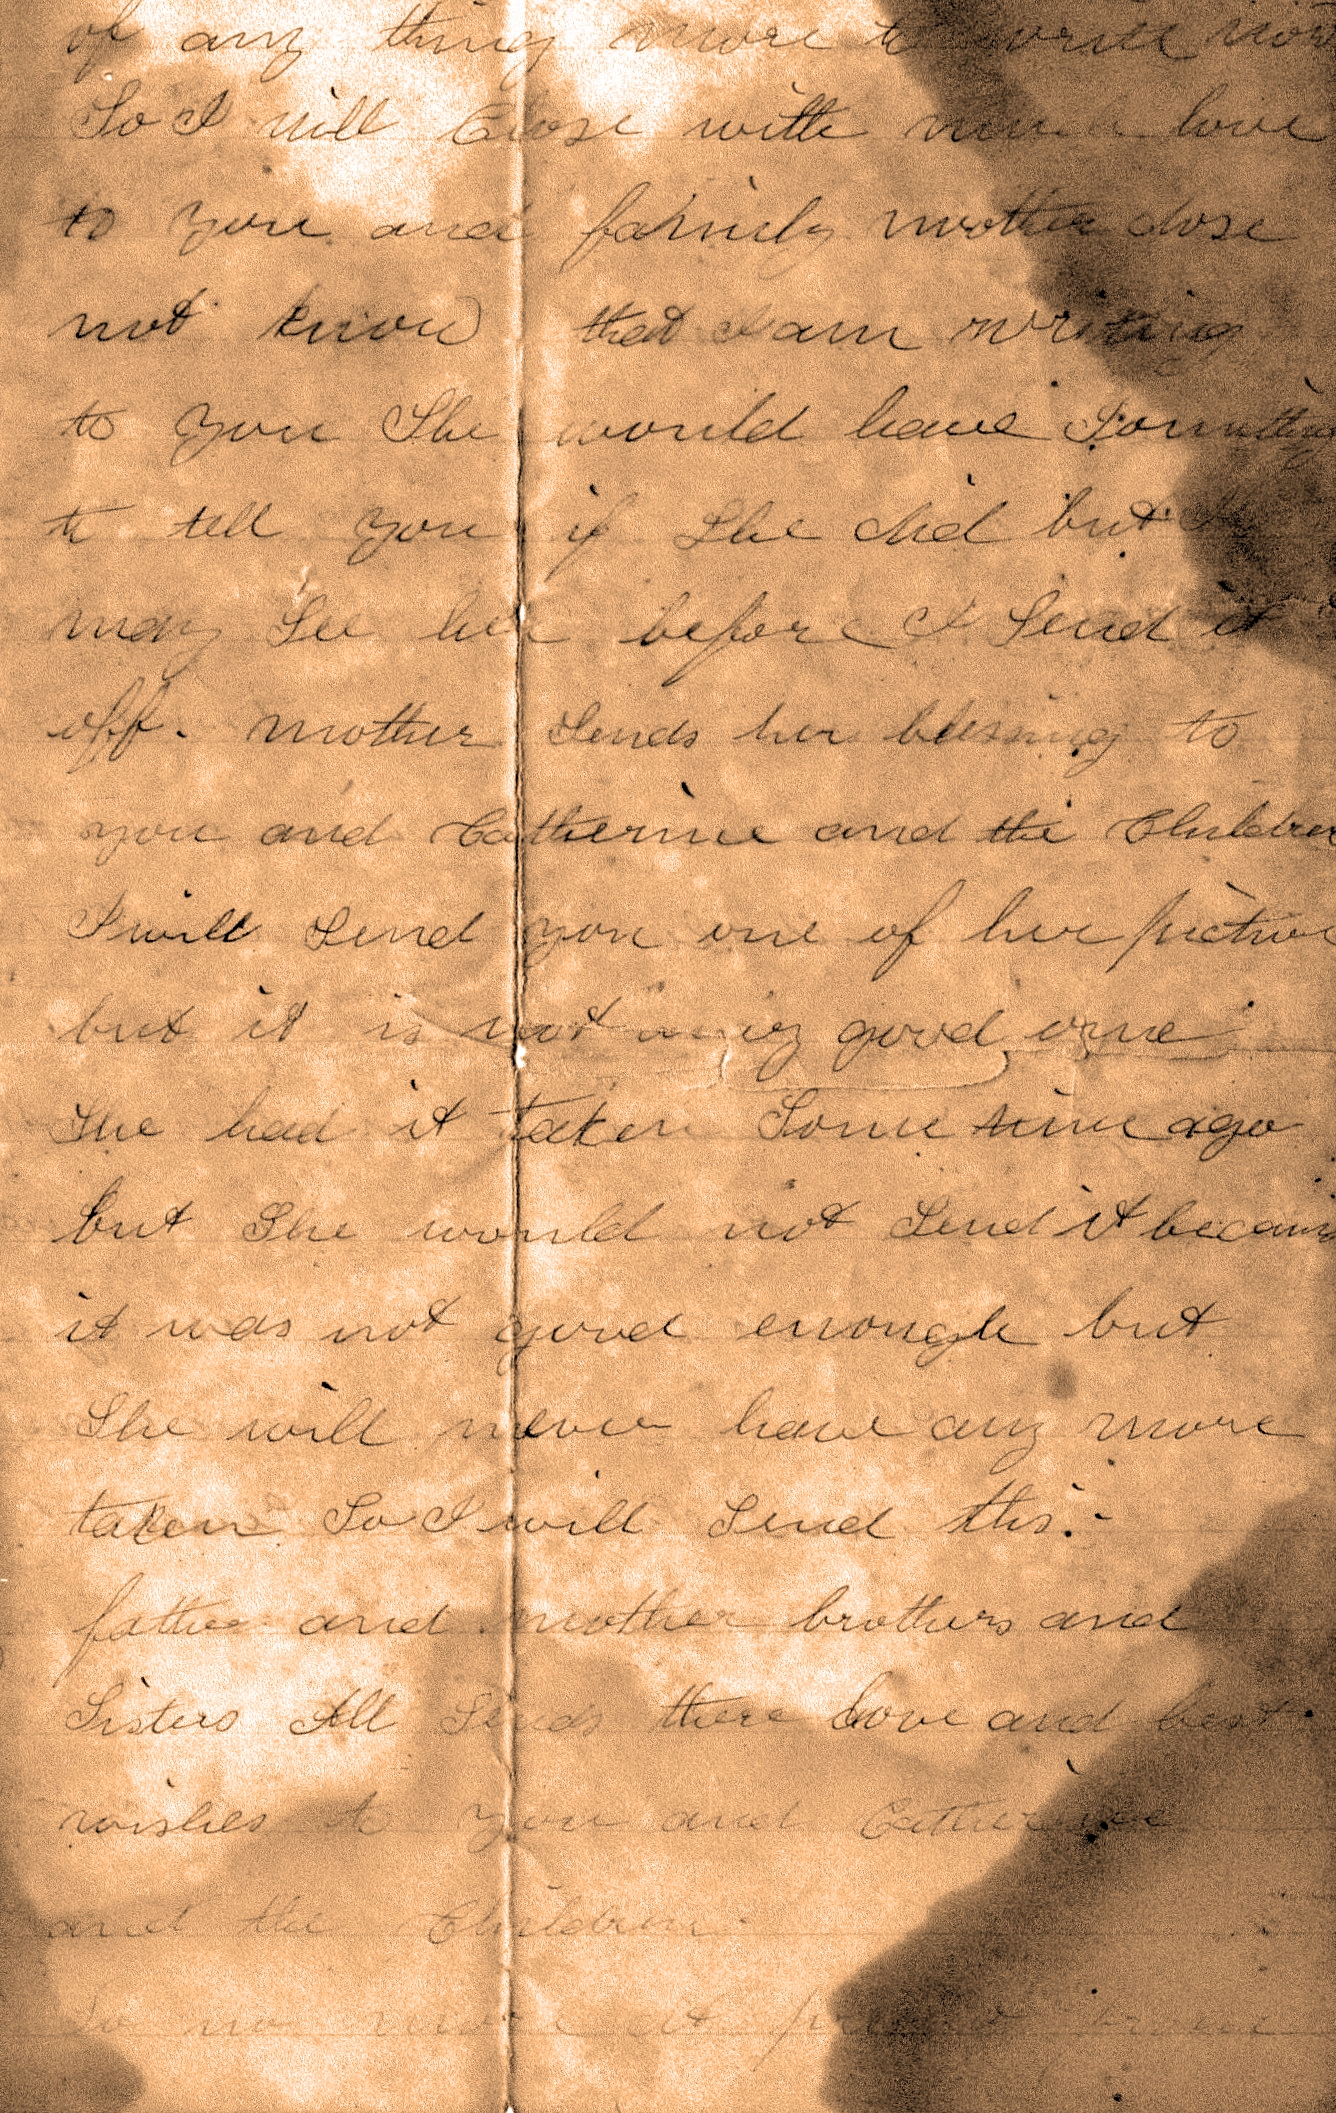 of any thing more to write now
So I will Close with much love
to you and family mother dose
not know that I am writing
to you She would have Somthing
to tell you if She did but I
may See her before I Send it
off. mother Sends her blessing to
you and Catherine and the Children
I will Send you one of her picture
but it is not a very good one
She had it taken Some time ago
but She would not Send it because
it was not good enough but
She will never have any more
taken So I will Send this.
father and mother brothers and
Sisters All Sends there Love and best
wishes to you and Catherine
and the Children
So no more at present from